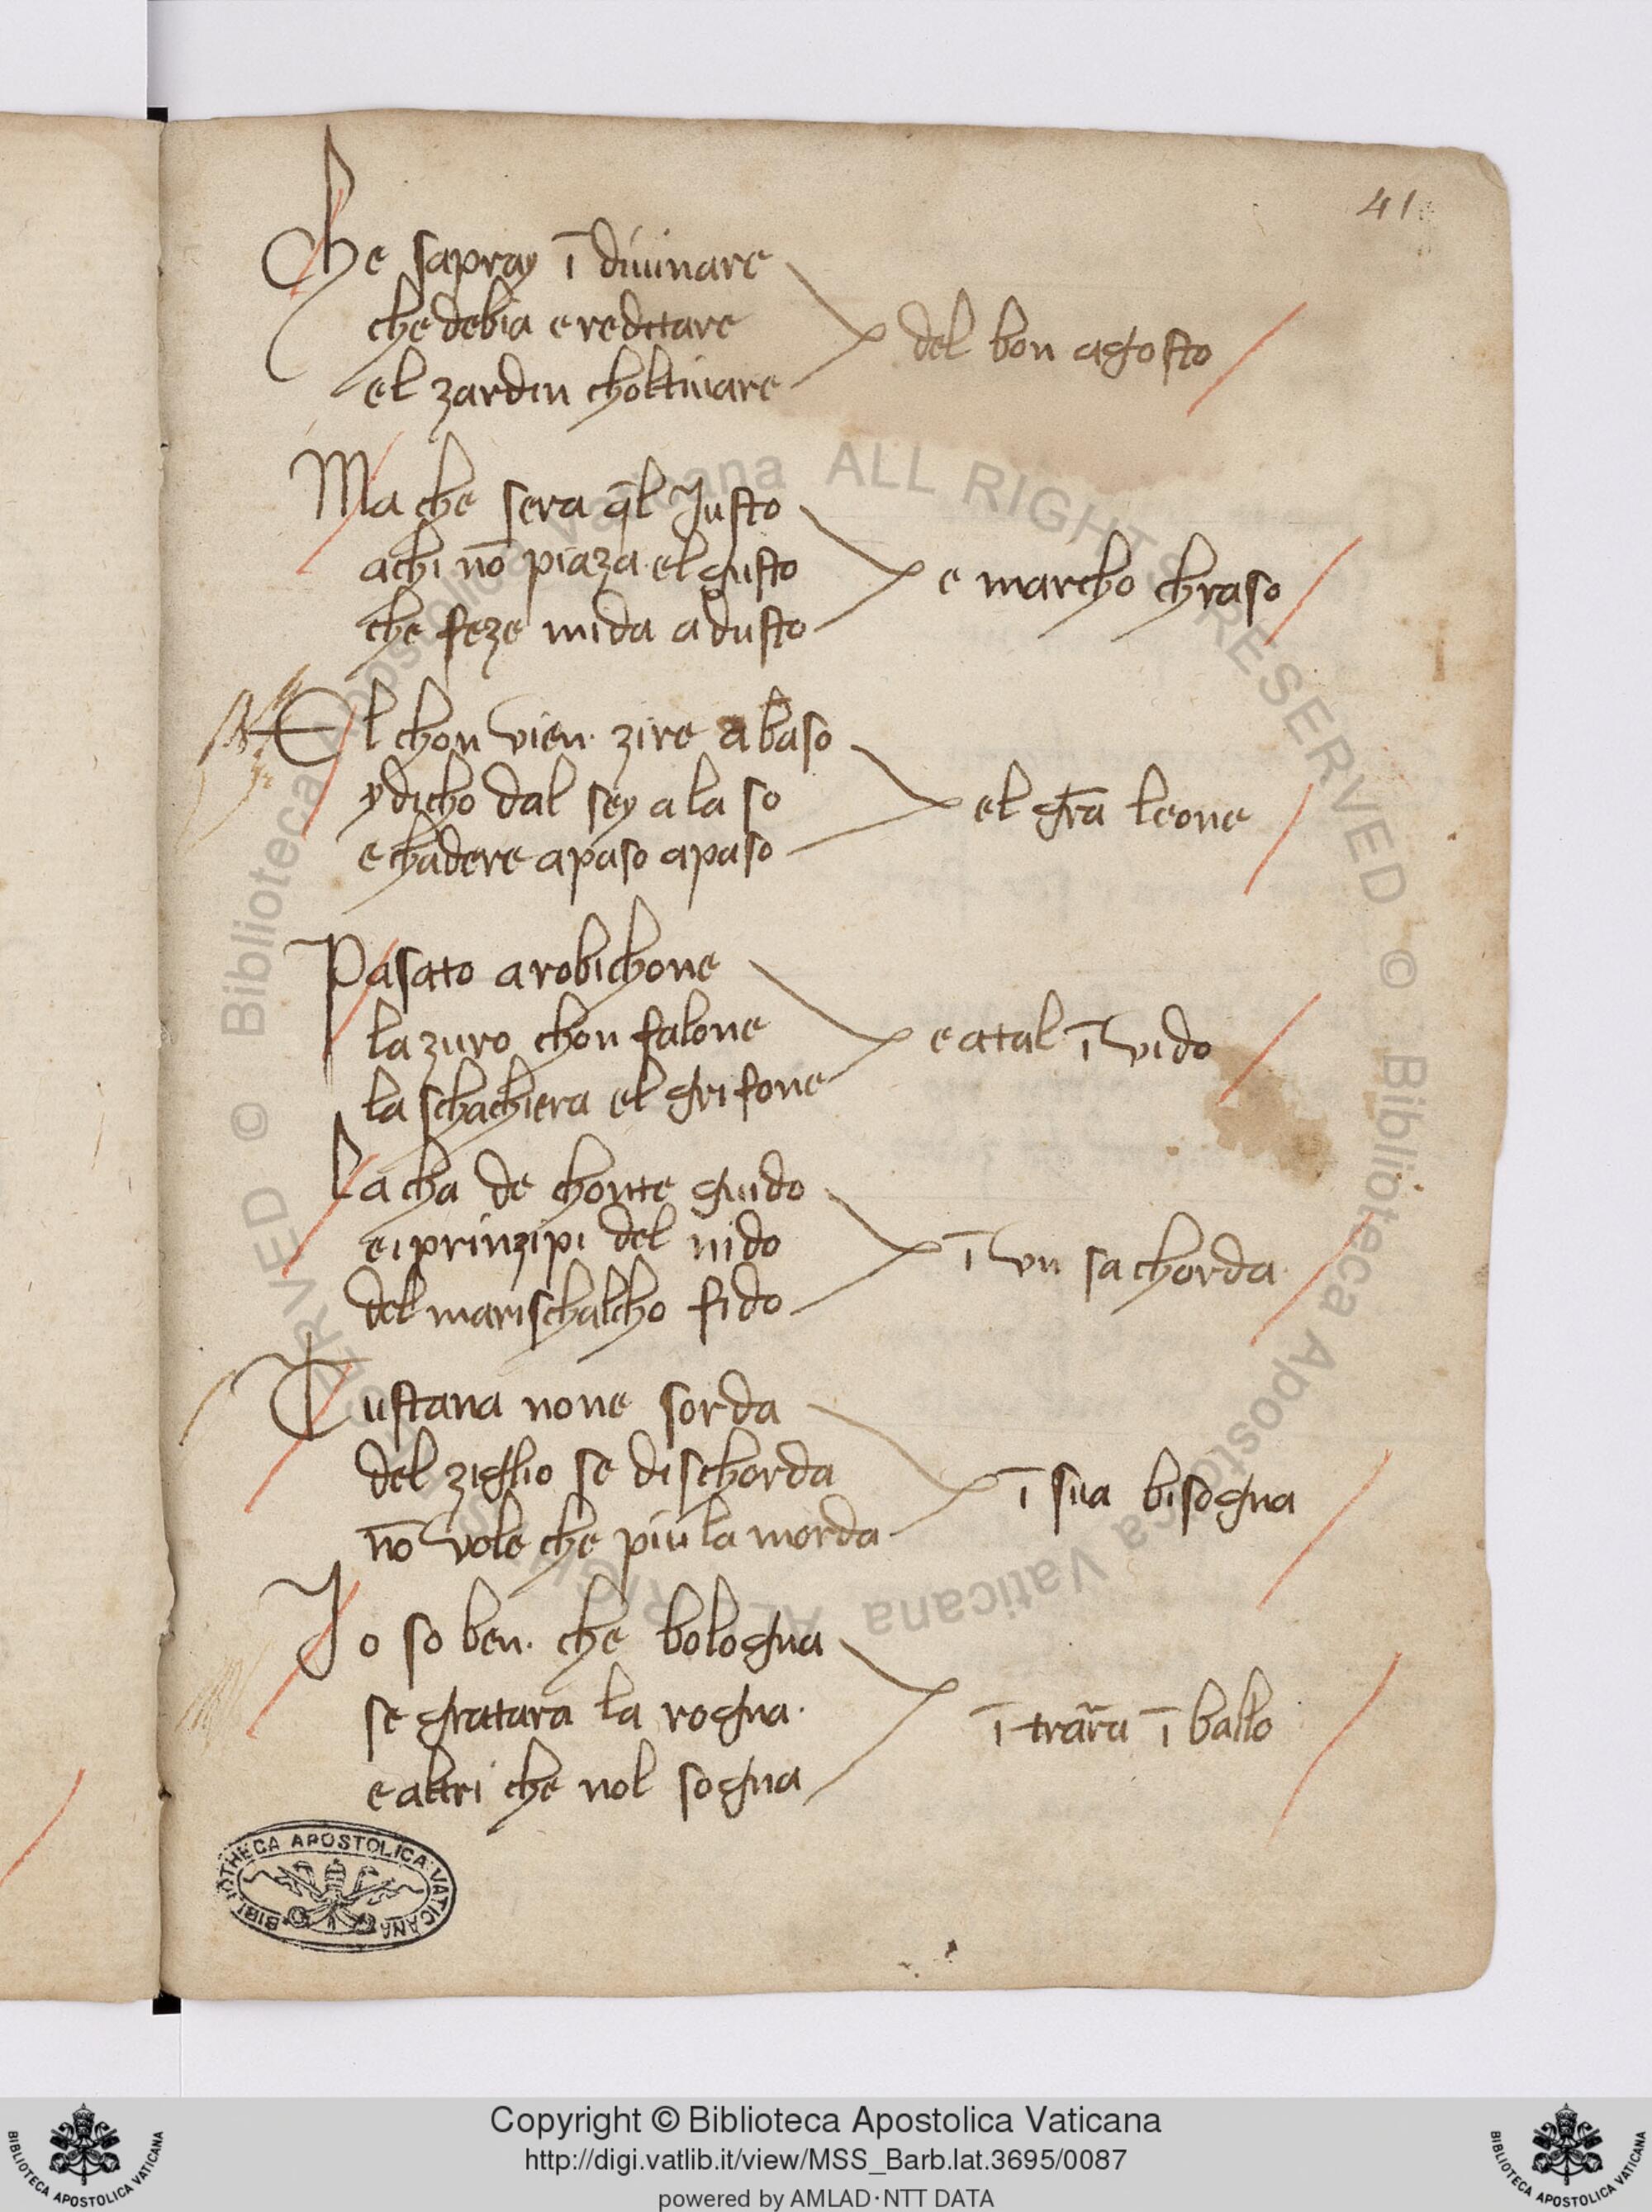 41
Che sapray ī diuinare
che debia ereditare
el zardin choltiuare
del bon agosto
Ma che sera q̄l Justo
achi nō piaza el gusto
che feze mida adusto
e marcho chraso
El chon vien zire abaso
ydicho dal sey ala so
e chadere apaso apaso
el grā leone
Pasato arobichone
lazuro chonfalone
la schachiera el grifone
e atal īvido
La cha de chonte guido
ei prinzipi del nido
del marischalcho fido
ī vn sa chorda
Tustana none sorda
del ziglio se dischorda
nō vole che piu la morda
ī sua bisogna
Jo so ben. che bologna
se gratara la rogna.
e altri che nol sogna
ī trar̄a ī ballo
BIBLIOTHECA APOSTOLICA VATICANA
© Biblioteca Apostolica Vaticana ALL RIGHTS RESERVED © Biblioteca Apostolica Vaticana ALL RIGHTS RESERVED
Copyright © Biblioteca Apostolica Vaticana
http://digi.vatlib.it/view/MSS_Barb.lat.3695/0087
powered by AMLAD·NTT DATA
BIBLIOTECA APOSTOLICA VATICANA
BIBLIOTECA APOSTOLICA VATICANA